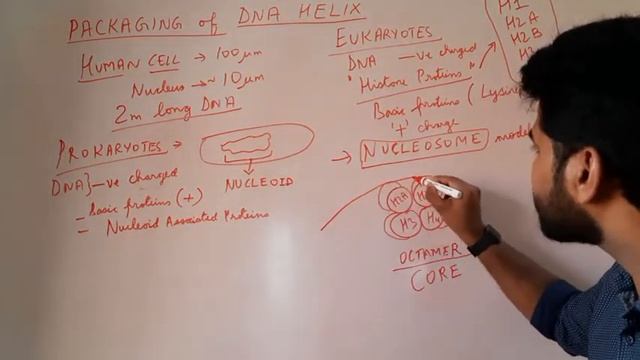 PACKAGING of DNA HELIX
HUMAN CELL → 100 μm
Nucleus → ~ 10 μm
2m long DNA
PROKARYOTES →
DNA} -ve charged
- basic proteins (+)
- Nucleoid Associated Proteins
NUCLEOID
EUKARYOTES
DNA -ve charged
"Histone Proteins"
Basic proteins (Lysine
'+' charge
→ NUCLEOSOME model
H1
H2A
H2B
H2A
H3
H4
OCTAMER
CORE